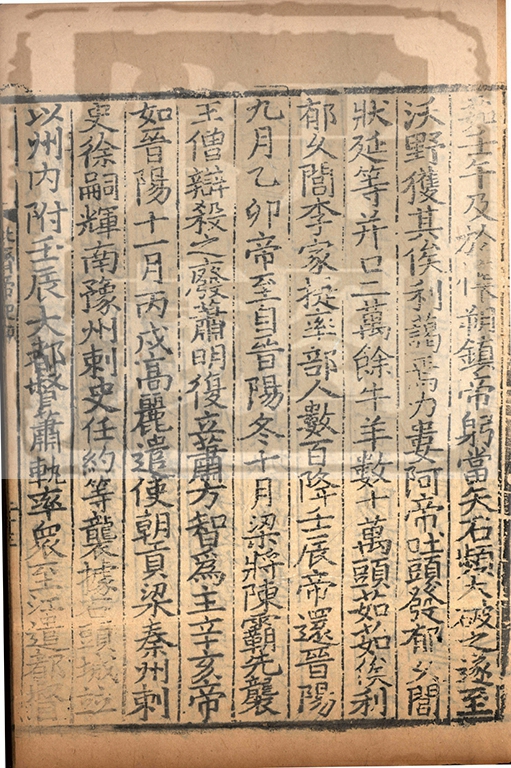 茹壬午及於懷朔鎮帝躬當矢石頻大破之遂至
沃野獲其俟利藹焉力婁阿帝吐頭發郁久閭
狀延等并口二萬餘牛羊數十萬頭茹茹俟利
郁久閭李家提率部人數百降壬辰帝還晉陽
九月乙卯帝至自晉陽冬十月梁將陳霸先襲
王僧辯殺之廢蕭明復立蕭方智為主辛亥帝
如晉陽十一月丙戌高麗遣使朝貢梁秦州刺
史徐嗣輝南豫州刺史任約等襲據石頭城並
以州內附壬辰大都督蕭軌率眾至江遣都督